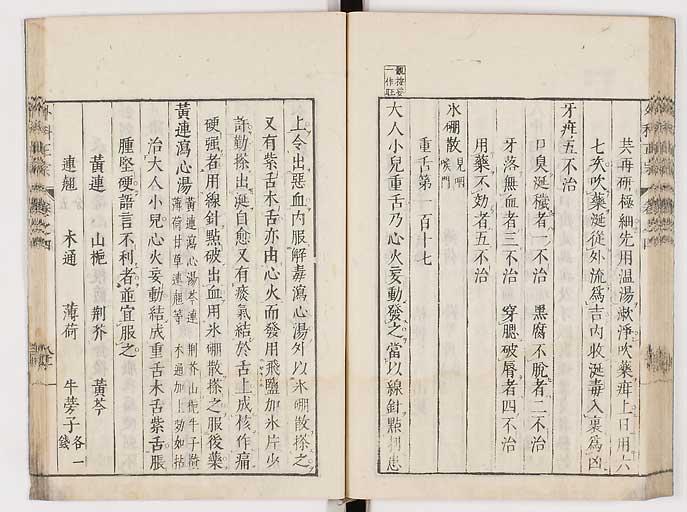 共再研極細先用温湯漱淨吹藥疳上日用六
七次吹藥涎從外流爲吉内收涎毒入裏爲凶
牙疳五不治
口臭涎穢者一不治　黑腐不脫者二不治
牙落無血者三不治　穿腮破唇者四不治
用藥不効者五不治
氷硼散見咽喉門
重舌第一百十七
大人小兒重舌乃心火妄動發之當以線針點刺患
上令出惡血内服解毒瀉心湯外以氷硼散搽之
又有紫舌木舌亦由心火而發用飛鹽加氷片少
許勤搽出涎自愈又有痰氣結於舌上成核作痛
硬强者用線針點破出血用氷硼散搽之服後藥
黃連瀉心湯
黃連瀉心湯芩連　荆芥山梔牛子
薄荷甘草連翹等　木通加上効如拈
治大人小兒心火妄動結成重舌木舌紫舌脹
腫堅硬語言不利者並宜服之
黃連　山梔　荆芥　黃芩
連翹　木通　薄荷　牛蒡子各一錢
外科正宗
卷之四